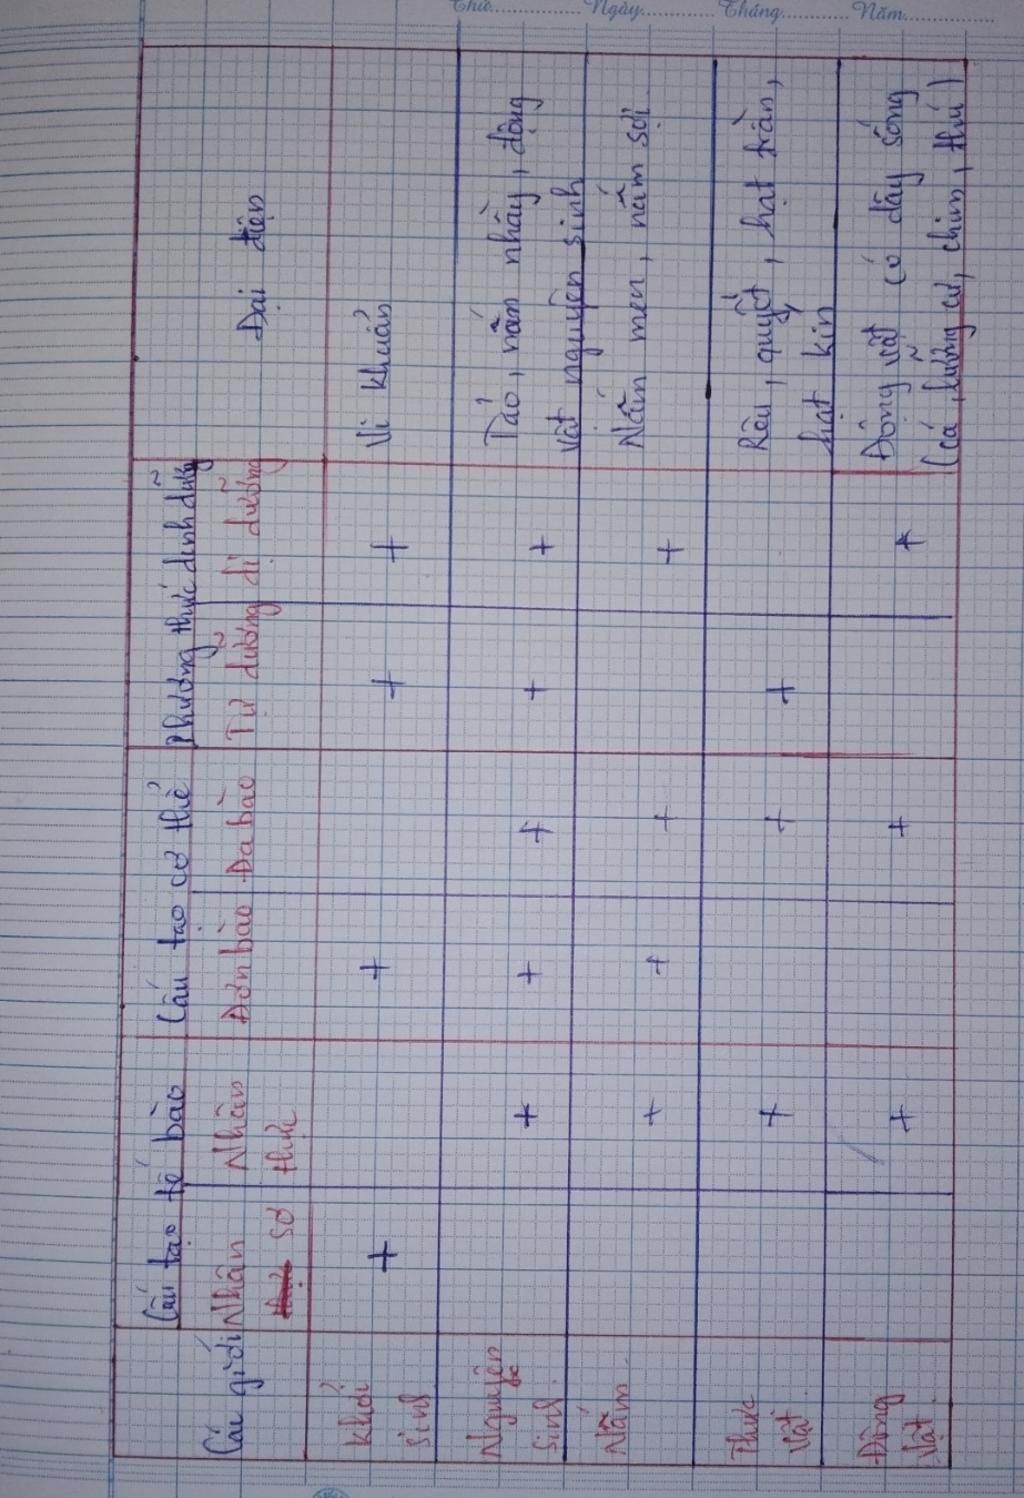 Thứ Ngày Tháng Năm
Các giới Cấu tạo tế bào Cấu tạo cơ thể Phương thức dinh dưỡng Đại diện
Nhân sơ Nhân thực Đơn bào Đa bào Tự dưỡng dị dưỡng
Khởi sinh + + + + Vi khuẩn
Nguyên sinh + + + + + Tảo, nấm nhầy, động
vật nguyên sinh
Nấm + + + + Nấm men, nấm sợi
Thực vật + + + Rêu, quyết, hạt trần,
hạt kín
Động vật + + + Động vật có dây sống
(cá, lưỡng cư, chim, thú)